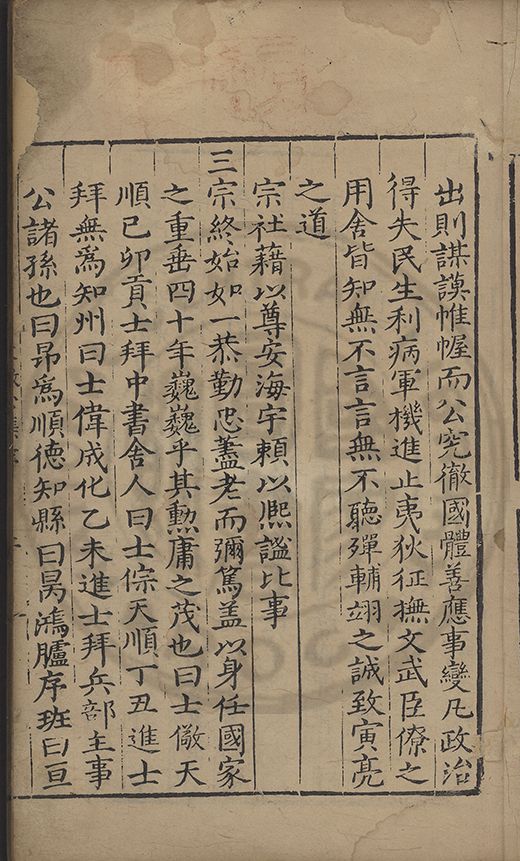 出則謀謨帷幄而公究徹國體善應事變凡政治
得失民生利病軍機進止夷狄征撫文武臣僚之
用舍皆知無不言言無不聽殫輔翊之誠致寅亮
之道
宗社藉以尊安海宇賴以熈謐比事
三宗終始如一恭勤忠藎老而彌篤盖以身任國家
之重垂四十年巍巍乎其勲庸之茂也曰士儆天
順己卯貢士拜中書舍人曰士倧天順丁丑進士
拜無爲知州曰士偉成化乙未進士拜兵部主事
公諸孫也曰昻爲順德知縣曰昺鴻臚序班曰亘